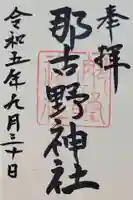 奉拝
那古野神社
令和五年九月三十日